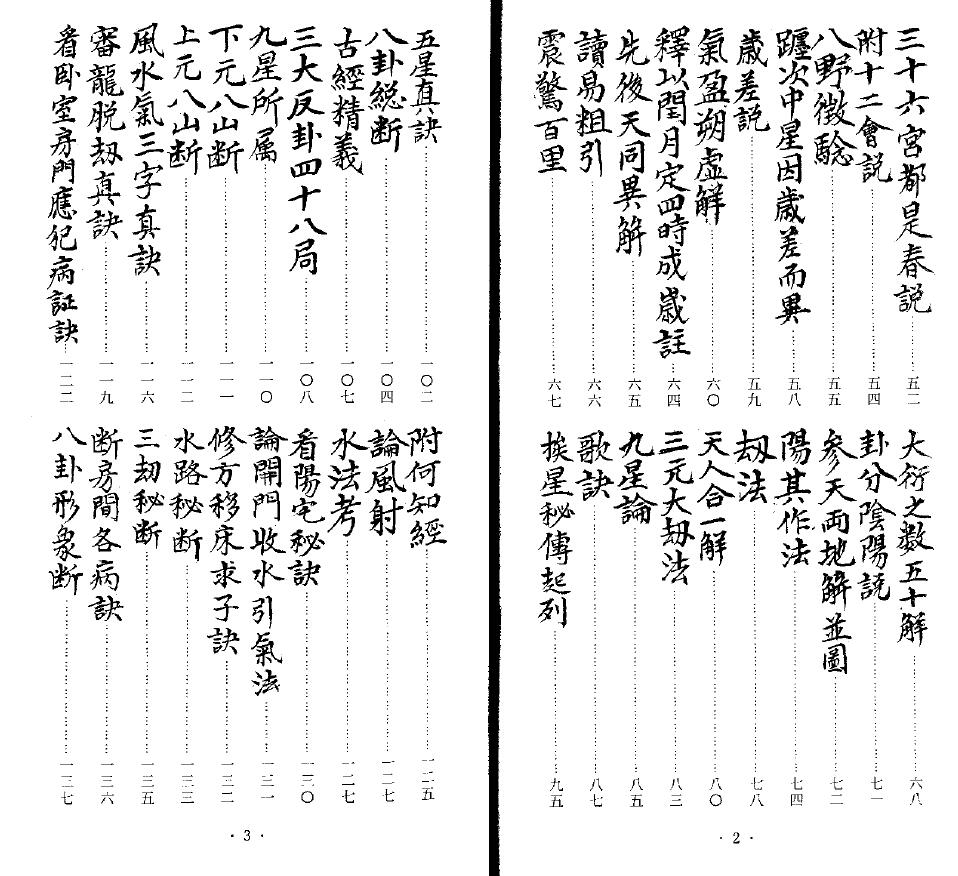 三十六宮都是春説……五二
附十二會説……五四
八野徵驗……五五
躔次中星因歲差而異……五八
歲差説……五九
氣盈朔虛解……六〇
釋以閏月定四時成歲註……六四
先後天同異解……六五
讀易粗引……六六
震驚百里……六七
大衍之数五十解……六八
卦分陰陽説……七一
參天両地解並圖……七二
陽基作法……七四
劫法……七八
天人合一解……八〇
三元大劫法……八三
九星論……八五
歌訣……八七
挨星秘傳起列……九五
· 2 ·
五星真訣……一〇二
八卦総断……一〇四
古經精義……一〇七
三大反卦四十八局……一〇八
九星所属……一一〇
下元八山断……一一一
上元八山断……一一二
風水氣三字真訣……一一六
審龍脱劫真訣……一一九
看卧室房門應犯病証訣……一二二
附何知經……一二五
論風射……一二七
水法考……一二七
看陽宅秘訣……一三〇
論開門收水引氣法……一三一
修方移床求子訣……一三二
水路秘断……一三三
三劫秘断……一三五
断房間各病訣……一三六
八卦形象断……一三七
· 3 ·